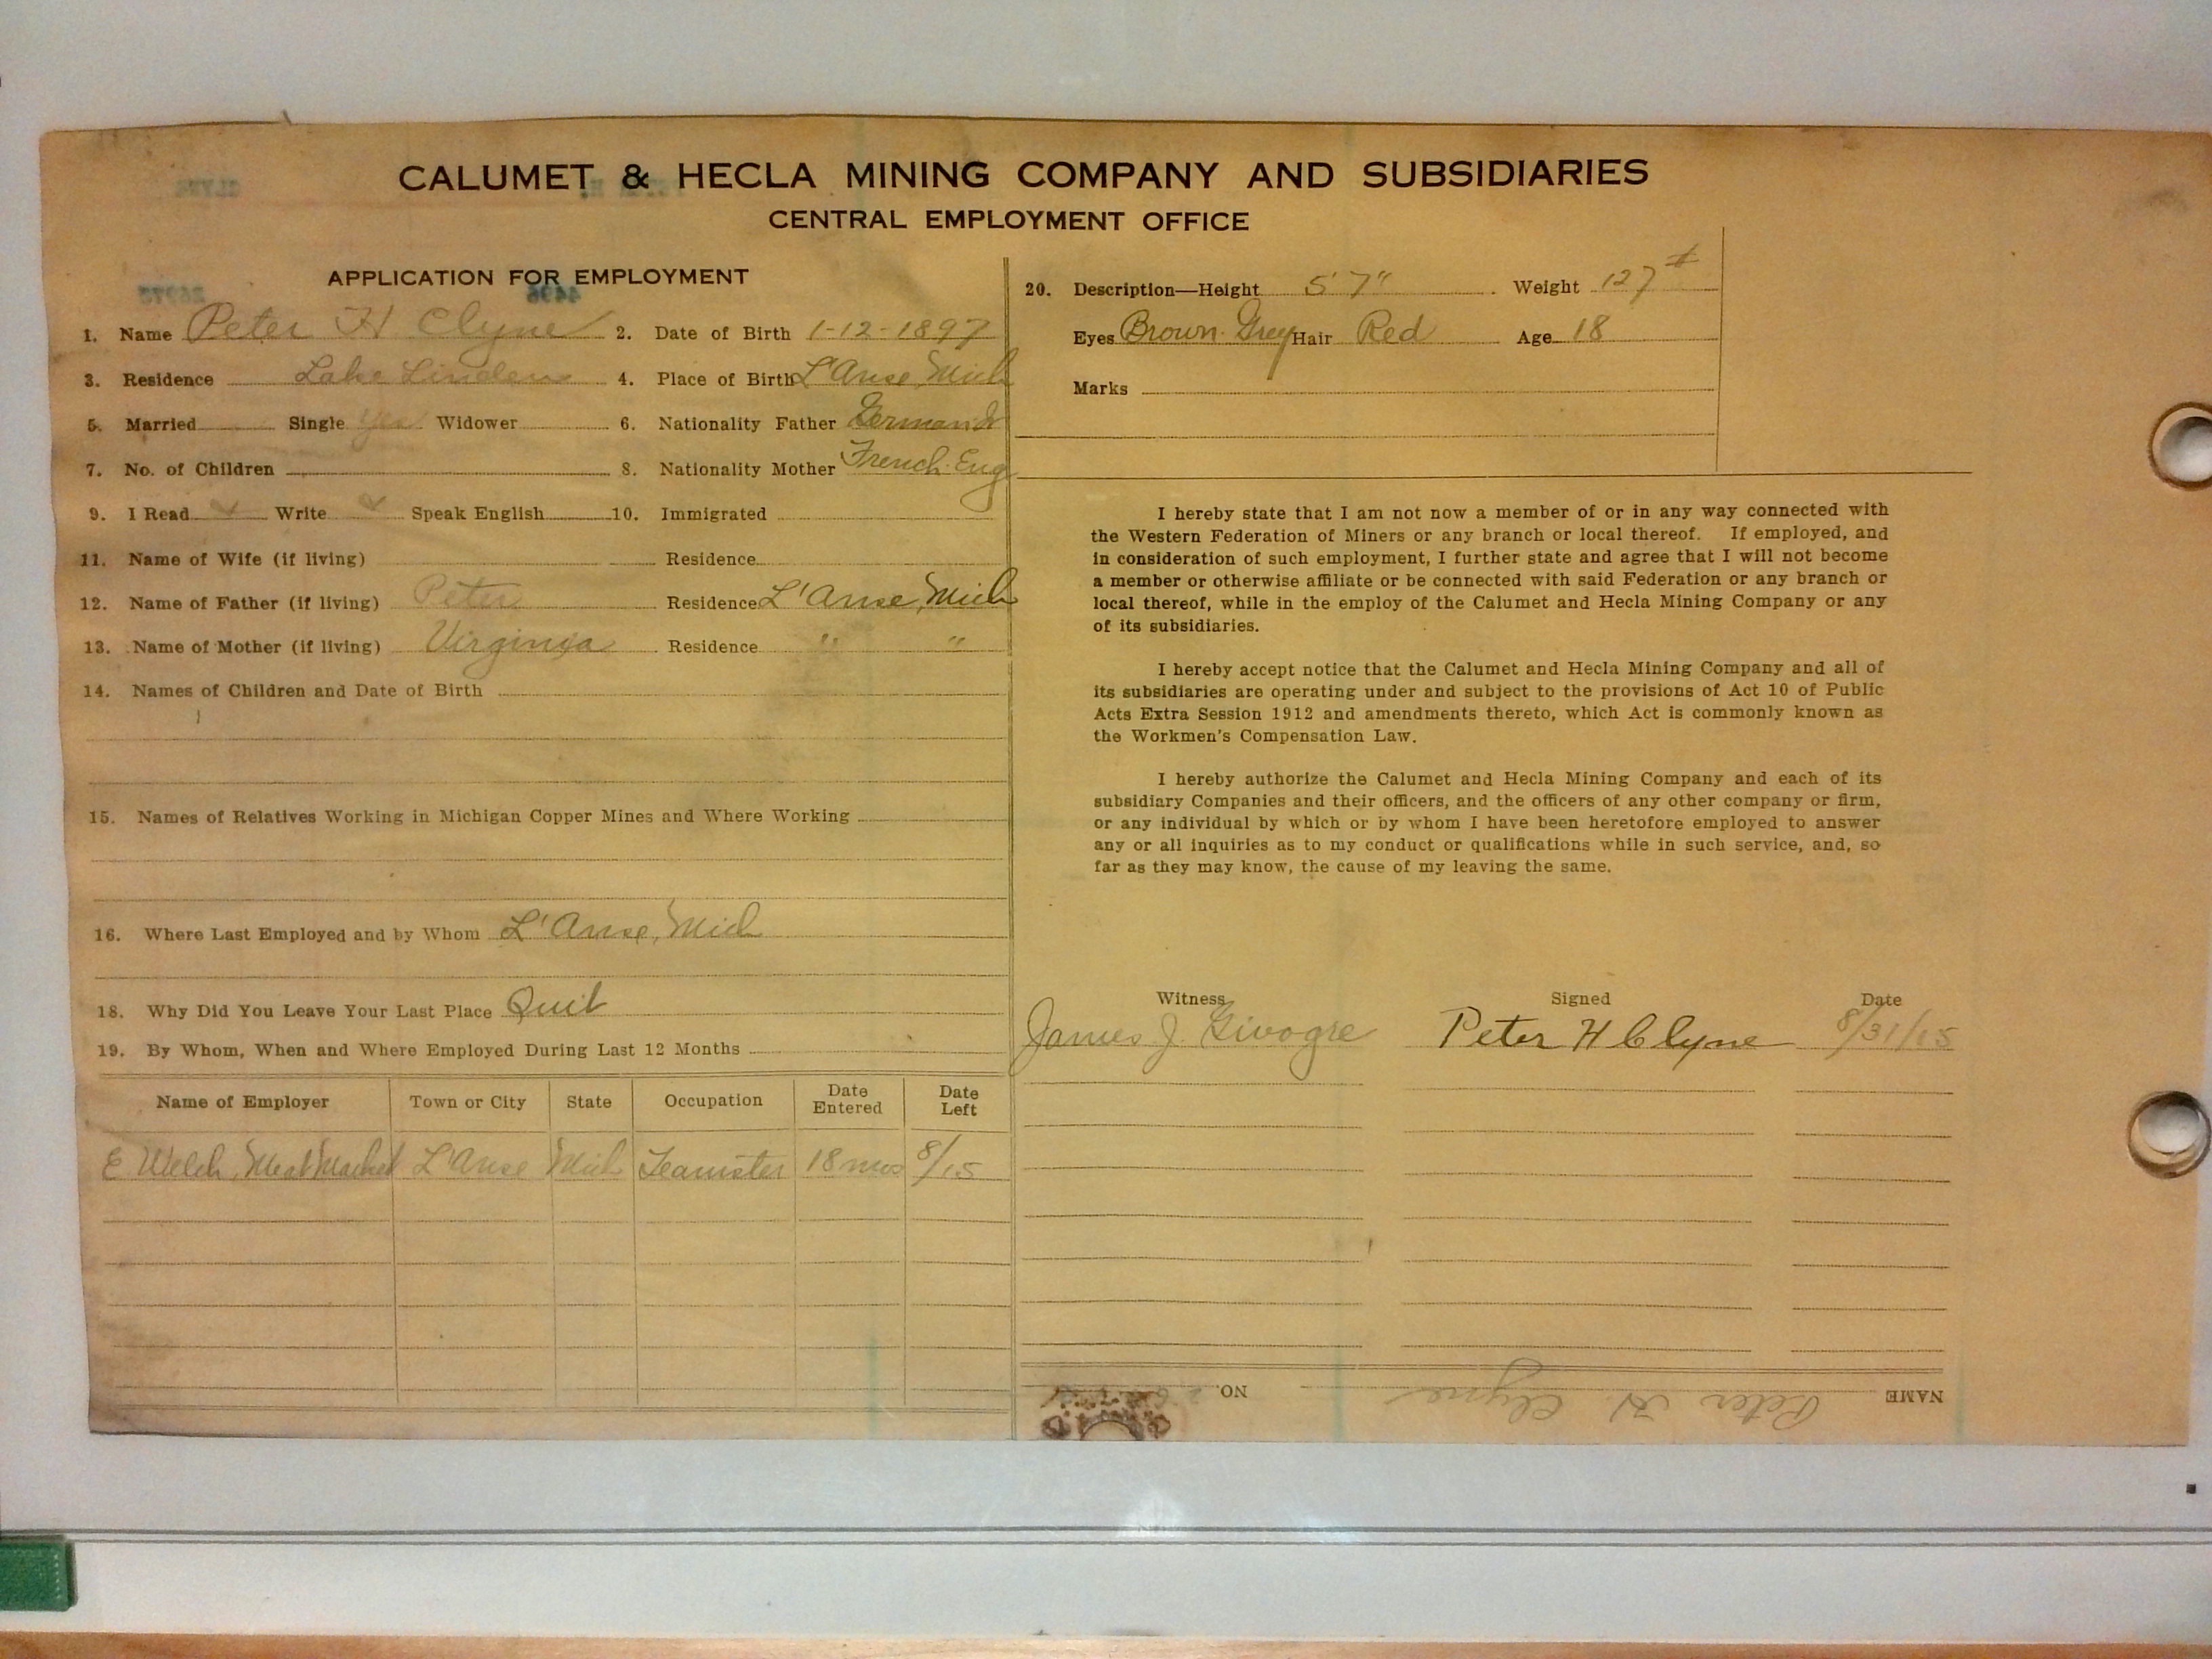 CALUMET & HECLA MINING COMPANY AND SUBSIDIARIES
CENTRAL EMPLOYMENT OFFICE
APPLICATION FOR EMPLOYMENT
1. Name Peter H Clyne 2. Date of Birth 1-12-1897
3. Residence Lake Linden 4. Place of Birth L'Anse, Mich
5. Married Single Yes Widower 6. Nationality Father German
7. No. of Children 8. Nationality Mother French-Eng
9. I Read Write Speak English 10. Immigrated
11. Name of Wife (if living) Residence
12. Name of Father (if living) Peter Residence L'Anse, Mich
13. Name of Mother (if living) Virginia Residence " "
14. Names of Children and Date of Birth
15. Names of Relatives Working in Michigan Copper Mines and Where Working
16. Where Last Employed and by Whom L'Anse, Mich
18. Why Did You Leave Your Last Place Quit
19. By Whom, When and Where Employed During Last 12 Months
Name of Employer Town or City State Occupation Date Entered Date Left
E Welch, Meat Market L'Anse Mich Teamster 18 mos 8/15
20. Description—Height 5' 7" Weight 127#
Eyes Brown-Grey Hair Red Age 18
Marks
I hereby state that I am not now a member of or in any way connected with
the Western Federation of Miners or any branch or local thereof. If employed, and
in consideration of such employment, I further state and agree that I will not become
a member or otherwise affiliate or be connected with said Federation or any branch or
local thereof, while in the employ of the Calumet and Hecla Mining Company or any
of its subsidiaries.
I hereby accept notice that the Calumet and Hecla Mining Company and all of
its subsidiaries are operating under and subject to the provisions of Act 10 of Public
Acts Extra Session 1912 and amendments thereto, which Act is commonly known as
the Workmen's Compensation Law.
I hereby authorize the Calumet and Hecla Mining Company and each of its
subsidiary Companies and their officers, and the officers of any other company or firm,
or any individual by which or by whom I have been heretofore employed to answer
any or all inquiries as to my conduct or qualifications while in such service, and, so
far as they may know, the cause of my leaving the same.
Witness Signed Date
James J. Givogre Peter H Clyne 8/31/15
NAME Peter H. Clyne NO.